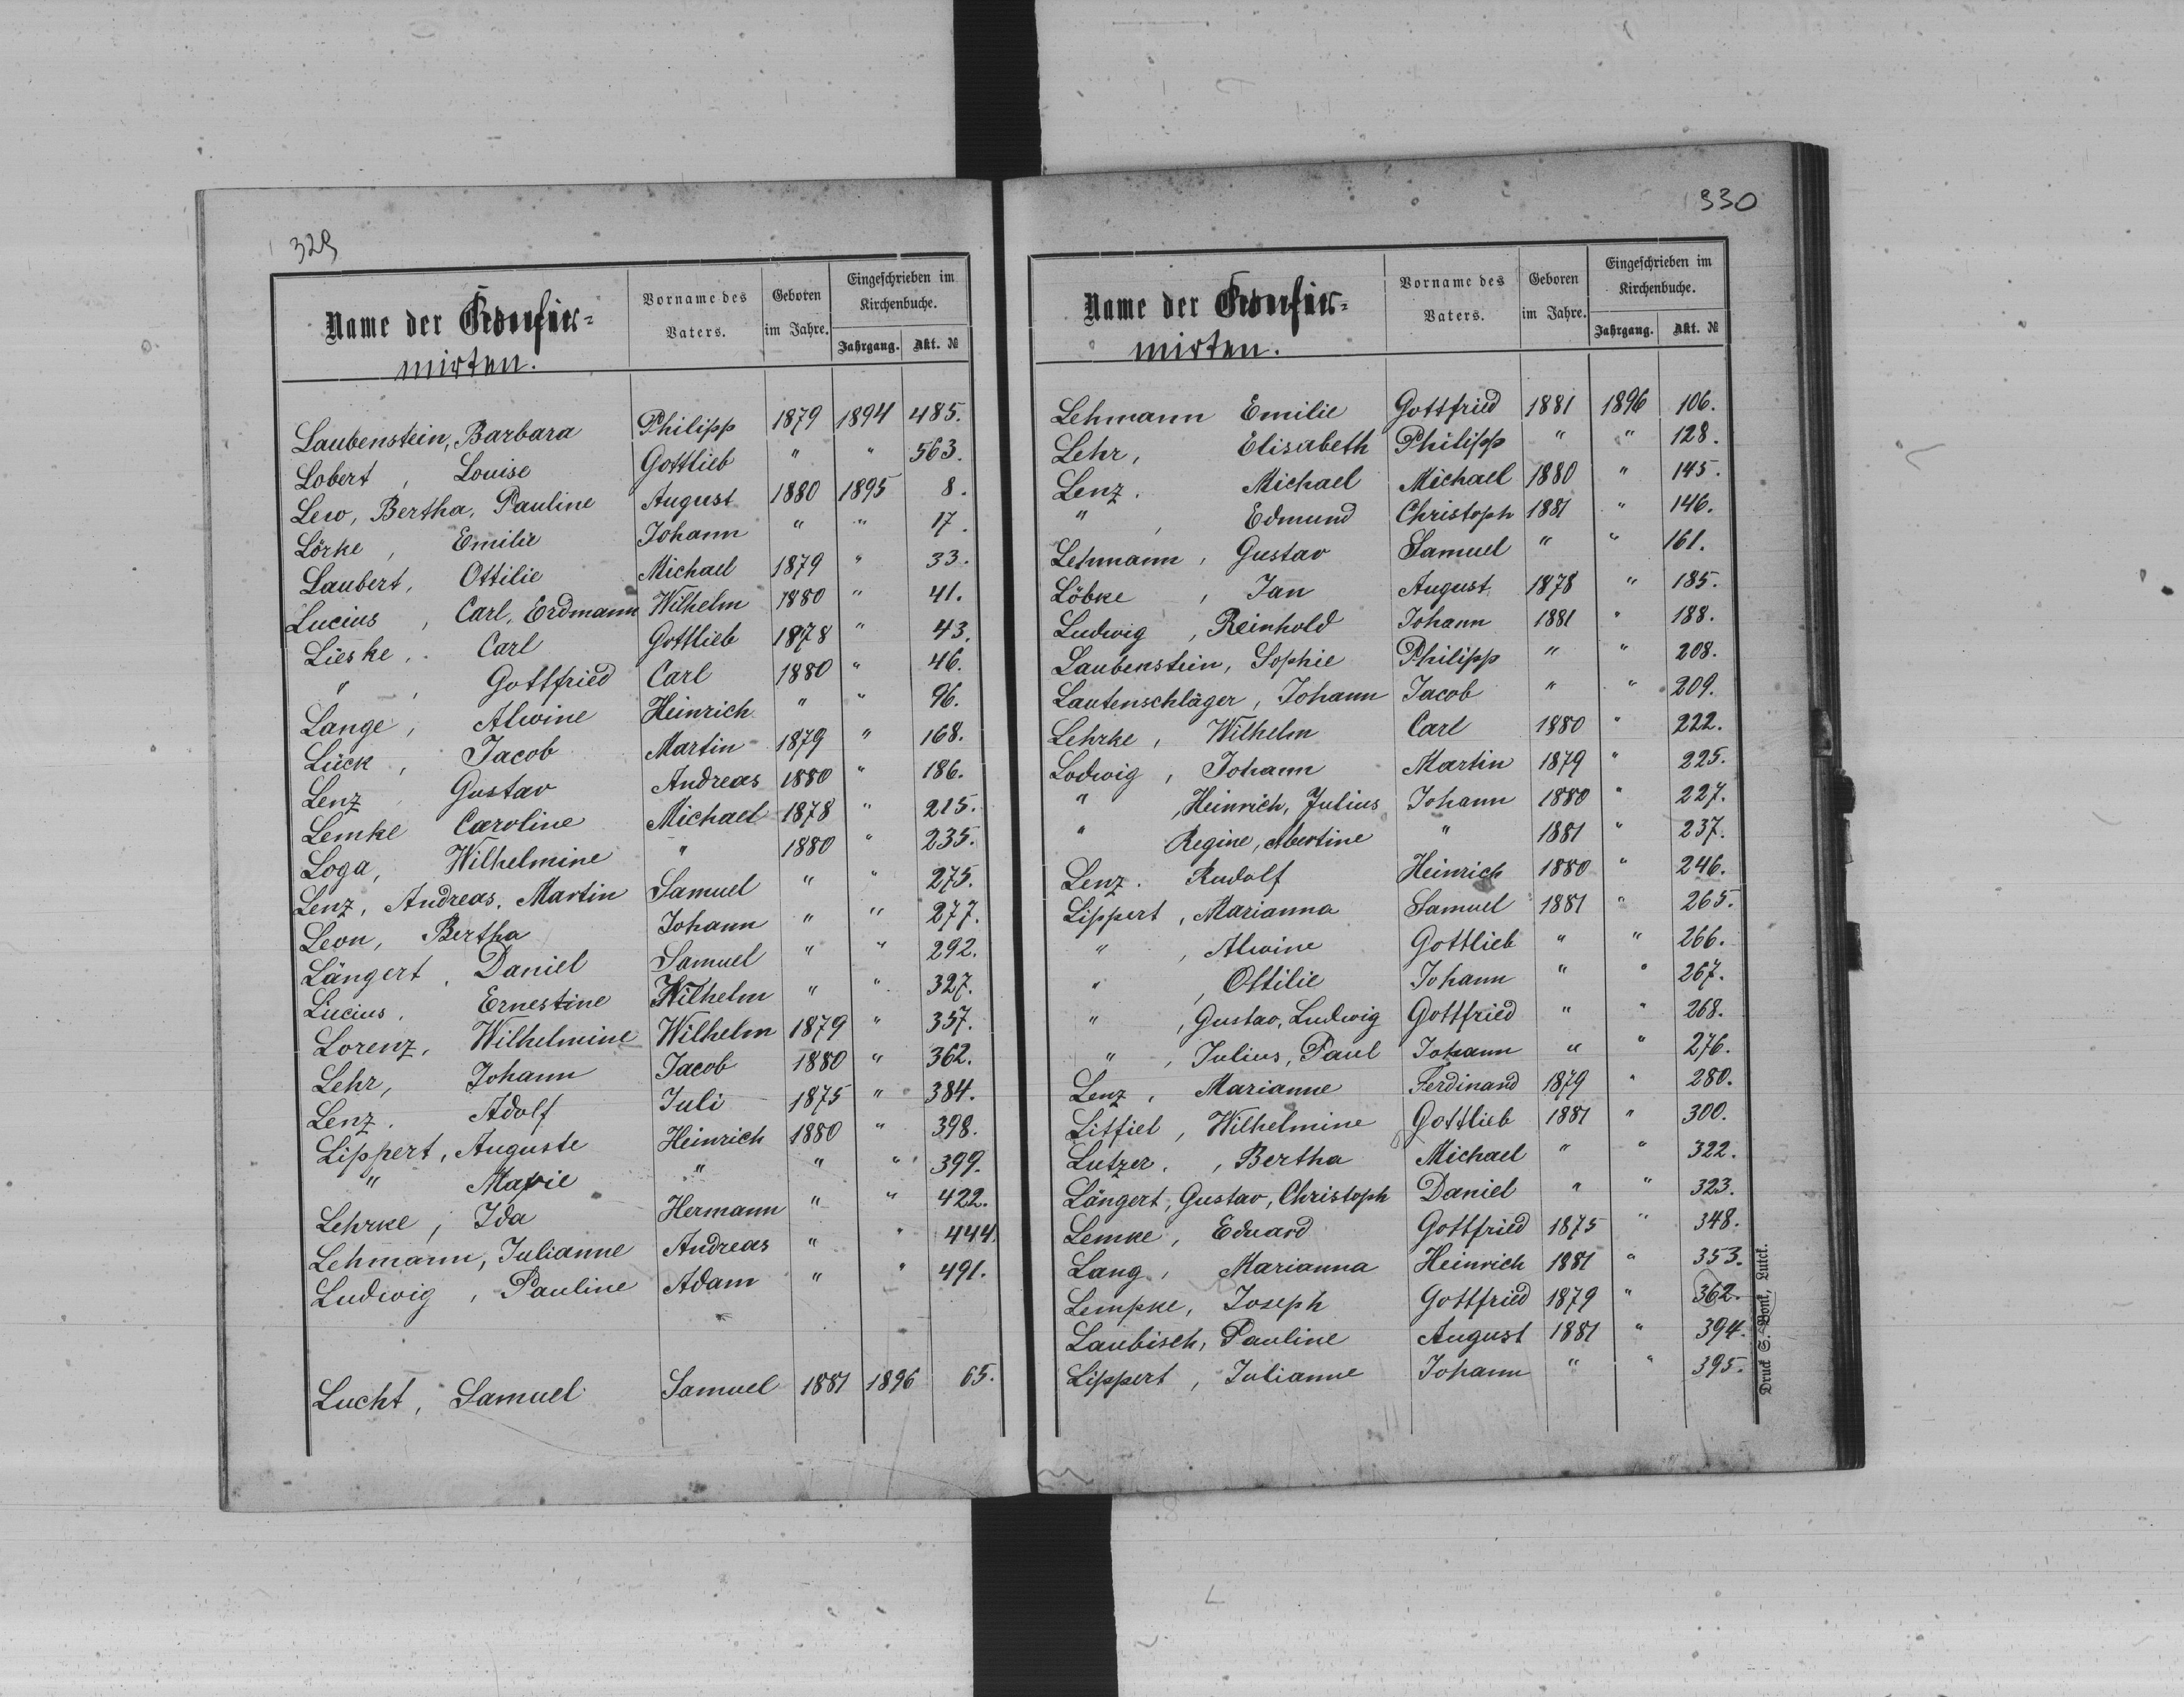 329
Name der Konfir=
mirten.
Vorname des Vaters.
Geboren im Jahre.
Eingeschrieben im Kirchenbuche.
Jahrgang. Akt. №
Laubenstein, Barbara Philipp 1879 1894 485.
Lobert, Louise Gottlieb " " 563.
Lew, Bertha, Pauline August 1880 1895 8.
Lörke, Emilie Johann " " 17.
Laubert, Ottilie Michael 1879 " 33.
Lucius, Carl, Erdmann Wilhelm 1880 " 41.
Lieske, Carl Gottlieb 1878 " 43.
" , Gottfried Carl 1880 " 46.
Lange, Alwine Heinrich " " 96.
Lück, Jacob Martin 1879 " 168.
Lenz, Gustav Andreas 1880 " 186.
Lemke Caroline Michael 1878 " 215.
Loga, Wilhelmine " 1880 " 235.
Lenz, Andreas, Martin Samuel " " 275.
Leon, Bertha Johann " " 277.
Längert, Daniel Samuel " " 292.
Lucius, Ernestine Wilhelm " " 327.
Lorenz, Wilhelmine Wilhelm 1879 " 357.
Lehr, Johann Jacob 1880 " 362.
Lenz. Adolf Juli 1875 " 384.
Lippert, Auguste Heinrich 1880 " 398.
" Marie " " " 399.
Lehrke, Ida Hermann " " 422.
Lehmann, Julianne Andreas " " 444.
Ludwig, Pauline Adam " " 491.
Lucht, Samuel Samuel 1881 1896 65.
330
Name der Konfir=
mirten.
Vorname des Vaters.
Geboren im Jahre.
Eingeschrieben im Kirchenbuche.
Jahrgang. Akt. №
Lehmann Emilie Gottfried 1881 1896 106.
Lehr, Elisabeth Philipp " " 128.
Lenz. Michael Michael 1880 " 145.
" , Edmund Christoph 1881 " 146.
Lehmann, Gustav Samuel " " 161.
Löbke, Jan August 1878 " 185.
Ludwig, Reinhold Johann 1881 " 188.
Laubenstein, Sophie Philipp " " 208.
Lautenschläger, Johann Jacob " " 209.
Lehrke, Wilhelm Carl 1880 " 222.
Lodwig, Johann Martin 1879 " 225.
" , Heinrich, Julius Johann 1880 " 227.
" Regine, Albertine " 1881 " 237.
Lenz. Rudolf Heinrich 1880 " 246.
Lippert, Marianna Samuel 1881 " 265.
" , Alwine Gottlieb " " 266.
" , Ottilie Johann " " 267.
" , Gustav, Ludwig Gottfried " " 268.
" , Julius, Paul Johann " " 276.
Lenz, Marianne Ferdinand 1879 " 280.
Littiel, Wilhelmine Gottlieb 1881 " 300.
Lutzer, Bertha Michael " " 322.
Längert, Gustav, Christoph Daniel " " 323.
Lemke, Eduard Gottfried 1875 " 348.
Lang, Marianna Heinrich 1881 " 353.
Lempke, Joseph Gottfried 1879 " 362.
Laubisch, Pauline August 1881 " 394.
Lippert, Julianne Johann " " 395.
Druck S. Bonk, Lutck.